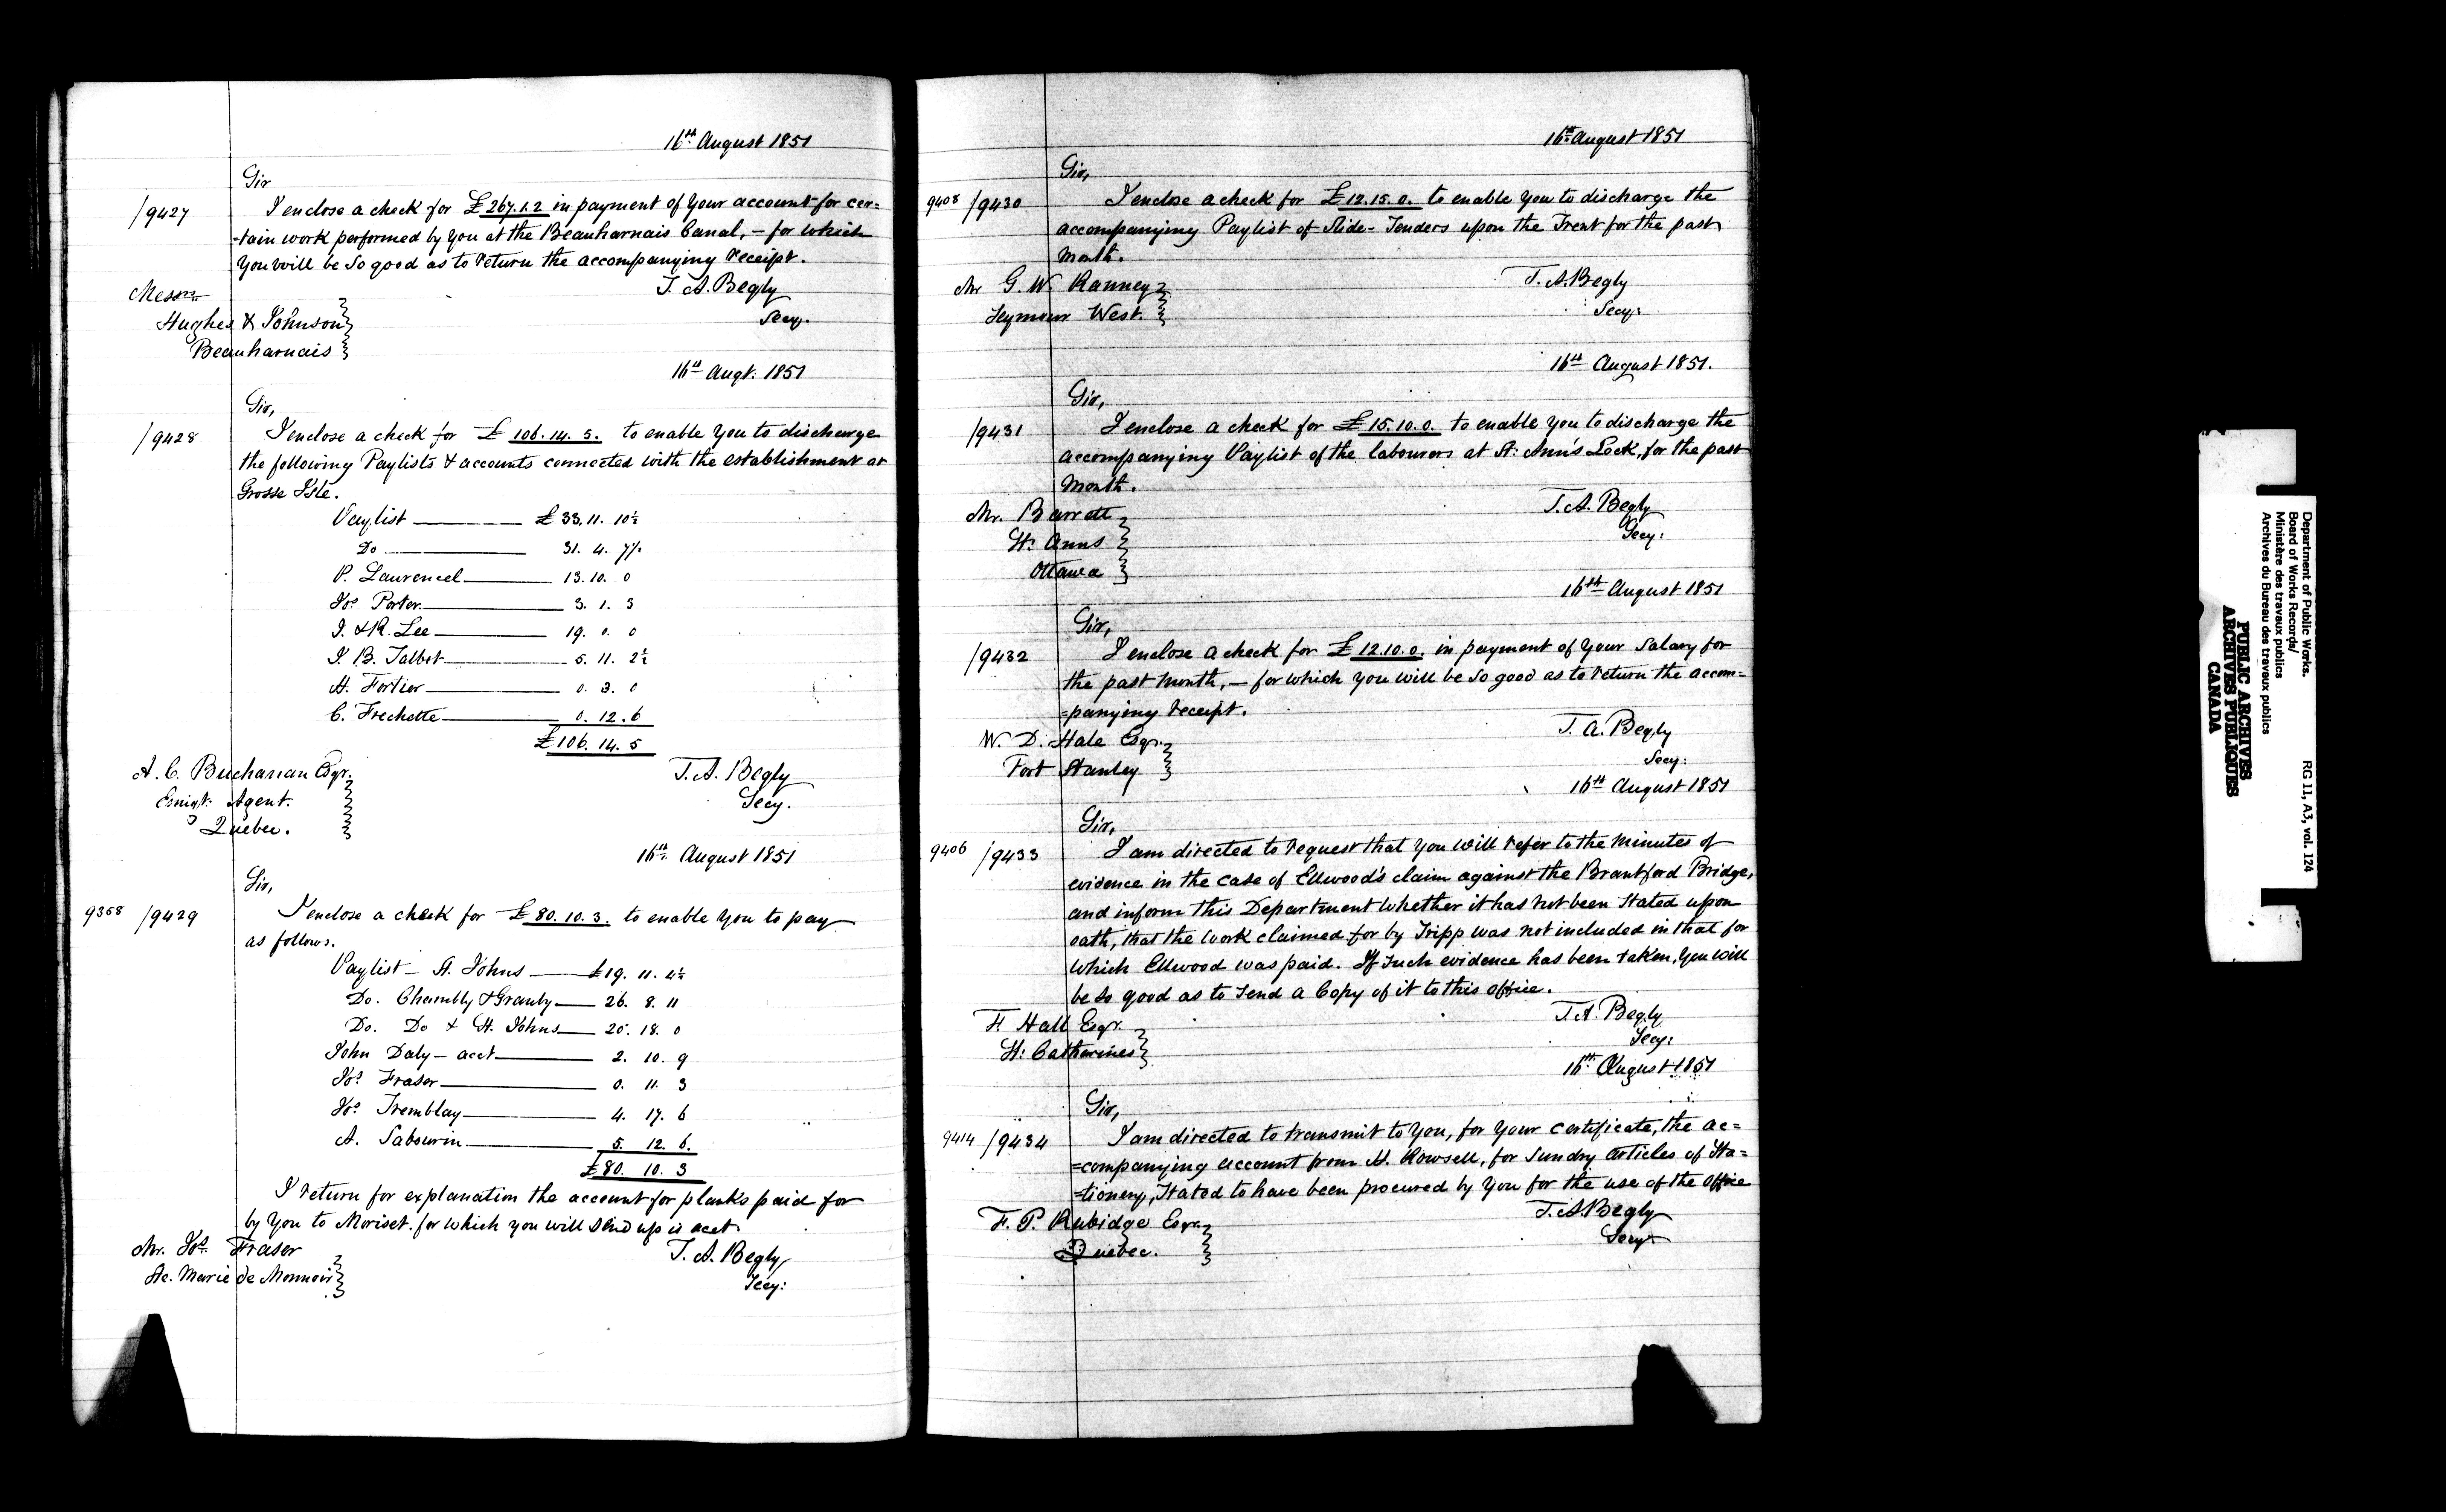 16th August 1851
Sir
/9427 I enclose a check for £267.1.2 in payment of your account for cer=
-tain work performed by you at the Beauharnais Canal, – for which
you will be so good as to return the accompanying receipt.
T. A. Begly
Secy.
Messrs
Hughes & Johnson
Beauharnais
16th Augt. 1851
Sir,
/9428 I enclose a check for £106.14.5. to enable you to discharge
the following Paylists & accounts connected with the establishment at
Grosse Isle.
Paylist £33.11.10½
Do 31.4.7½
P. Laurencel 13.10.0
Jos Porter 3.1.3
J. & R. Lee 19.0.0
J. B. Talbot 5.11.2½
H. Fortier 0.3.0
C. Frechette 0.12.6
£106.14.5
A. C. Buchanan Esqr.
Emigt. Agent.
Quebec.
T. A. Begly
Secy.
16th August 1851
Sir,
9358 /9429 I enclose a check for £80.10.3. to enable you to pay
as follows.
Paylist – St. Johns £19.11.4½
Do. Chambly & Granby 26.8.11
Do. Do & St. Johns 20.18.0
John Daly – acct 2.10.9
Jos Fraser 0.11.3
Jos Tremblay 4.17.6
A. Sabourin 5.12.6.
£80.10.3
I return for explanation the account for planks paid for
by you to Moriset. for which you will send up acct.
Mr. Jos. Fraser
Ste. Marie de Monnoir
T. A. Begly
Secy:
16th August 1851
Sir,
9408 /9430 I enclose a check for £12.15.0. to enable you to discharge the
accompanying Paylist of Slide-Tenders upon the Trent for the past
month.
Mr G. W. Ranney
Seymour West.
T. A. Begly
Secy:
16th August 1851.
Sir,
/9431 I enclose a check for £15.10.0. to enable you to discharge the
accompanying Paylist of the labourers at St. Ann's Lock, for the past
month.
Mr. Barrett
St. Anns
Ottawa
T. A. Begly
Secy:
16th August 1851
Sir,
/9432 I enclose a check for £12.10.0. in payment of your Salary for
the past month, – for which you will be so good as to return the accom=
=panying receipt.
W. D. Hale Esqr.
Port Stanley
T. A. Begly
Secy:
16th August 1851
Sir,
9406 /9433 I am directed to request that you will refer to the minutes of
evidence in the case of Ellwood's claim against the Brantford Bridge,
and inform this Department whether it has not been stated upon
oath, that the work claimed for by Tripp was not included in that for
which Ellwood was paid. If such evidence has been taken, you will
be so good as to send a Copy of it to this office.
F. Hall Esqr.
St. Catharines
T. A. Begly
Secy:
16th August 1851
Sir,
9414 /9434 I am directed to transmit to you, for your certificate, the ac=
=companying account from H. Rowsell, for sundry articles of Sta=
=tionery, stated to have been procured by you for the use of the office
F. P. Rubidge Esqr.
Quebec.
T. A. Begly
Secy
Department of Public Works.
Board of Works Records/
Ministère des travaux publics
Archives du Bureau des travaux publics
RG 11, A3, vol. 124
PUBLIC ARCHIVES
ARCHIVES PUBLIQUES
CANADA